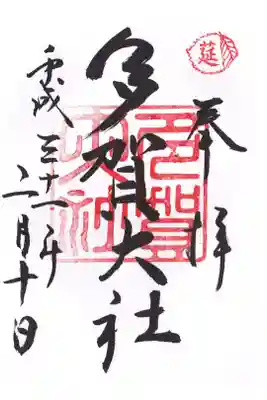 莚
奉拝
多賀大社
多賀大社
平成三十一年
二月十日